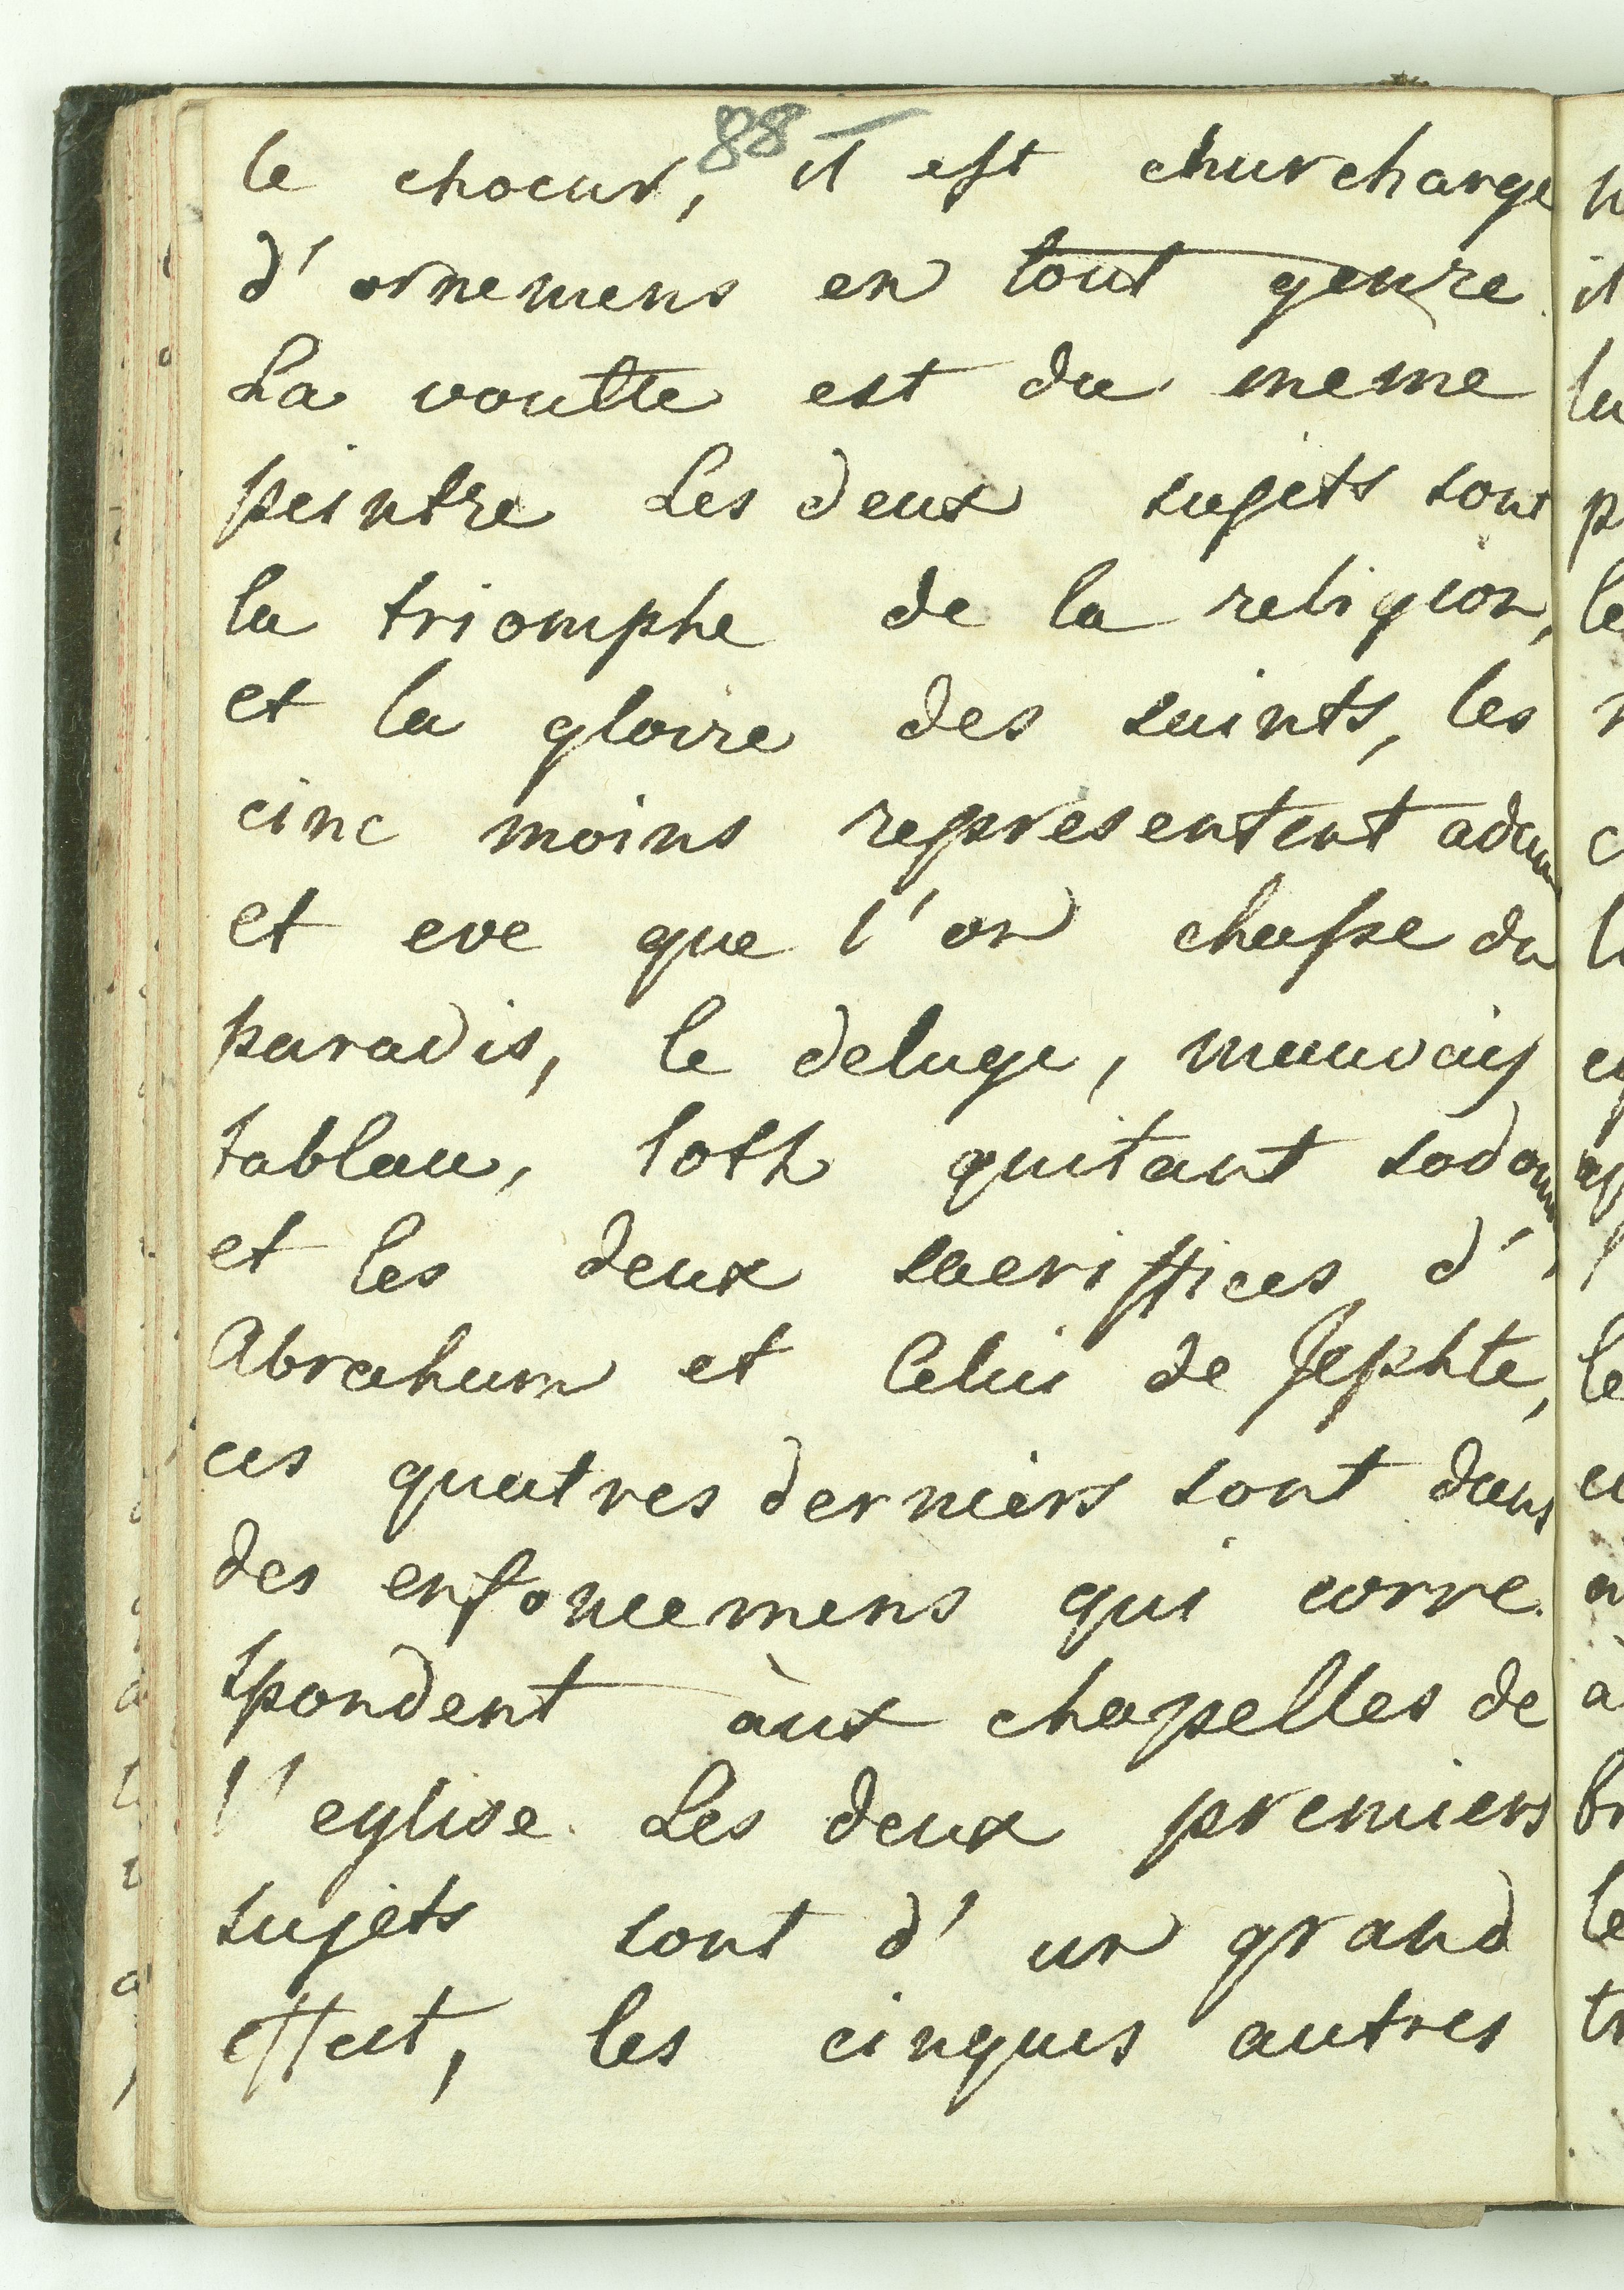 88
le choeur, il est churcharge
d'ornemens en tout genre.
La voutte est du meme
peintre Les deux sujets sont
la triomphe de la religion,
et la gloire des saints, les
cinc moins representent adam
et eve que l'on chasse du
paradis, le deluge, mauvais
tablau, loth quitant sodom
et les deux sacriffices d'
Abraham et Celui de Jephte,
ces quatres derniers sont dans
des enfoncemens qui corre
spondent àux chapelles de
l'eglise. Les deux premiers
sujets sont d'un grand
effect, les cinques autres